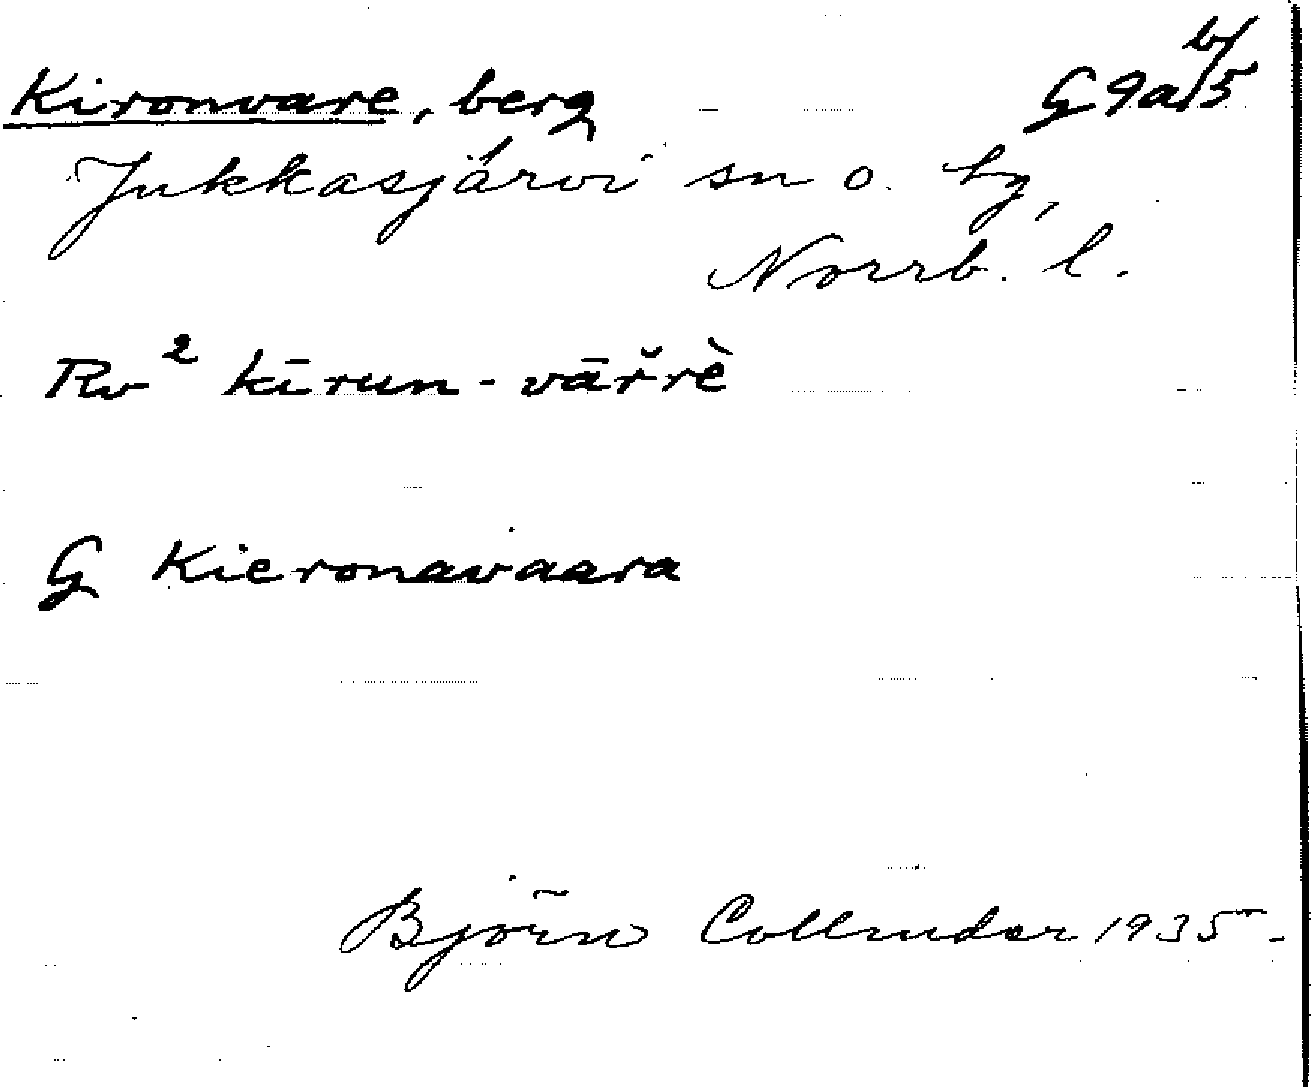 Kironvare, berg G 9a b/5
Jukkasjärvi sn o. hg,
Norrb. l.
Rv² kīrun-vār̆rè
G Kieronavaara
Björn Collinder 1935.